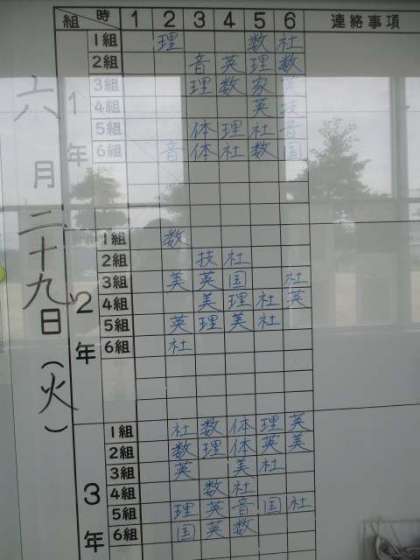 組 時 1 2 3 4 5 6 連絡事項
六月二十九日(火)
1年
1組 理 数 社
2組 音 英 理 数
3組 理 数 家
4組 英 技
5組 体 理 社 音
6組 音 体 社 数 国
2年
1組 数
2組 技 社
3組 美 英 国 社
4組 美 理 社 英
5組 英 理 美 社
6組 社
3年
1組 社 数 体 理 英
2組 数 理 体 英 美
3組 英 美 社
4組 数 社
5組 理 英 音 国 社
6組 国 英 数